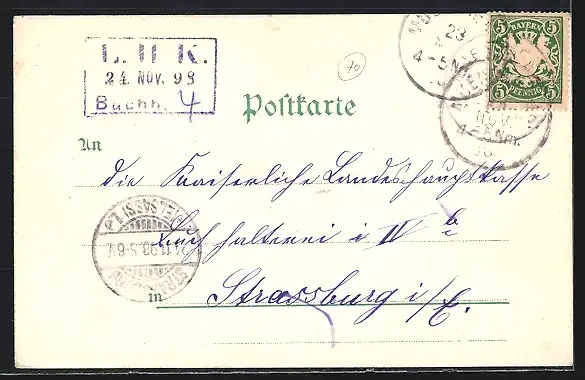 L. H K.
24 NOV. 98
Buchh. 4
70
23
4-5 N
5 BAYERN 5
5 PFENNIG 5
NOV
4-5 Nm.
Postkarte
An
die Kaiserliche Landeshauptkasse
Buchhalterei i IV b
24.11.98.5-6V
in Strassburg i/E.